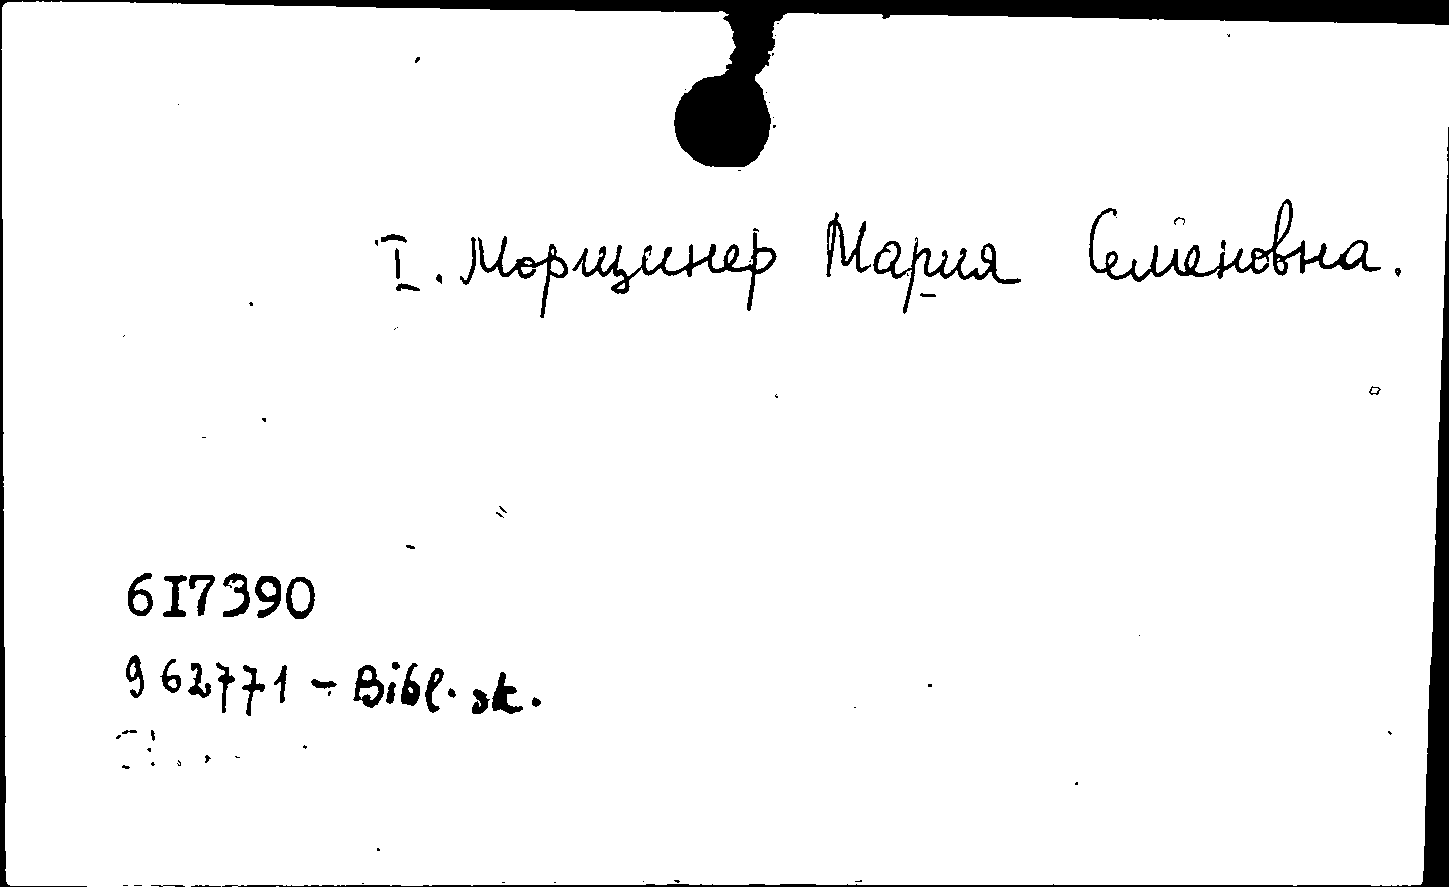 I. Морщинер Мария Семеновна.
6I7390
962771 – Bibl. sk.